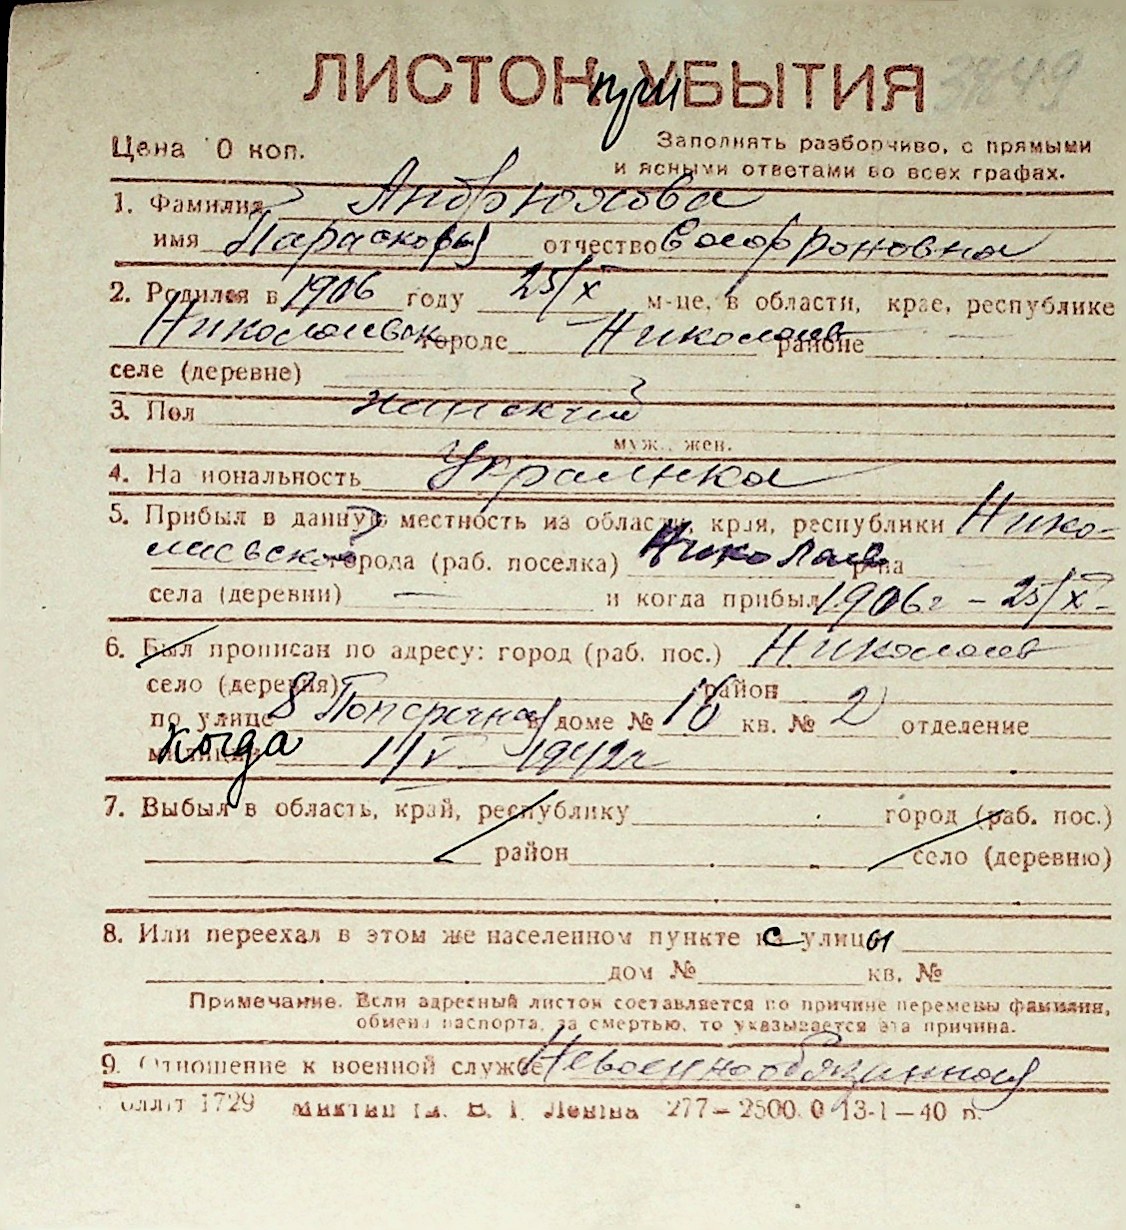 ЛИСТОК при УБЫТИЯ 38849
Цена 10 коп. Заполнять разборчиво, с прямыми
и ясными ответами во всех графах.
1. Фамилия Андрюхова
имя Парасковья отчество Софроновна
2. Родился в 1906 году 25/X м-це, в области, крае, республике
Николаевск городе Николаев районе
селе (деревне)
3. Пол женский
муж., жен.
4. Национальность Украинка
5. Прибыл в данную местность из области, края, республики Нико-
лаевской города (раб. поселка) Николаев р-на
села (деревни) — и когда прибыл 1906г – 25/X –
6. Был прописан по адресу: город (раб. пос.) Николаев
село (деревня) район
по улице 8 Поперечная в доме № 16 кв. № 2 отделение
милиции когда 11/V – 1942г
7. Выбыл в область, край, республику город (раб. пос.)
район село (деревню)
8. Или переехал в этом же населенном пункте с улицы
дом № кв. №
Примечание. Если адресный листок составляется по причине перемены фамилии,
обмена паспорта, за смертью, то указывается эта причина.
9. Отношение к военной службе Невоеннообязанная
Обллит 1729 им. В. І. Леніна 277–2500.0 13-1–40 р.